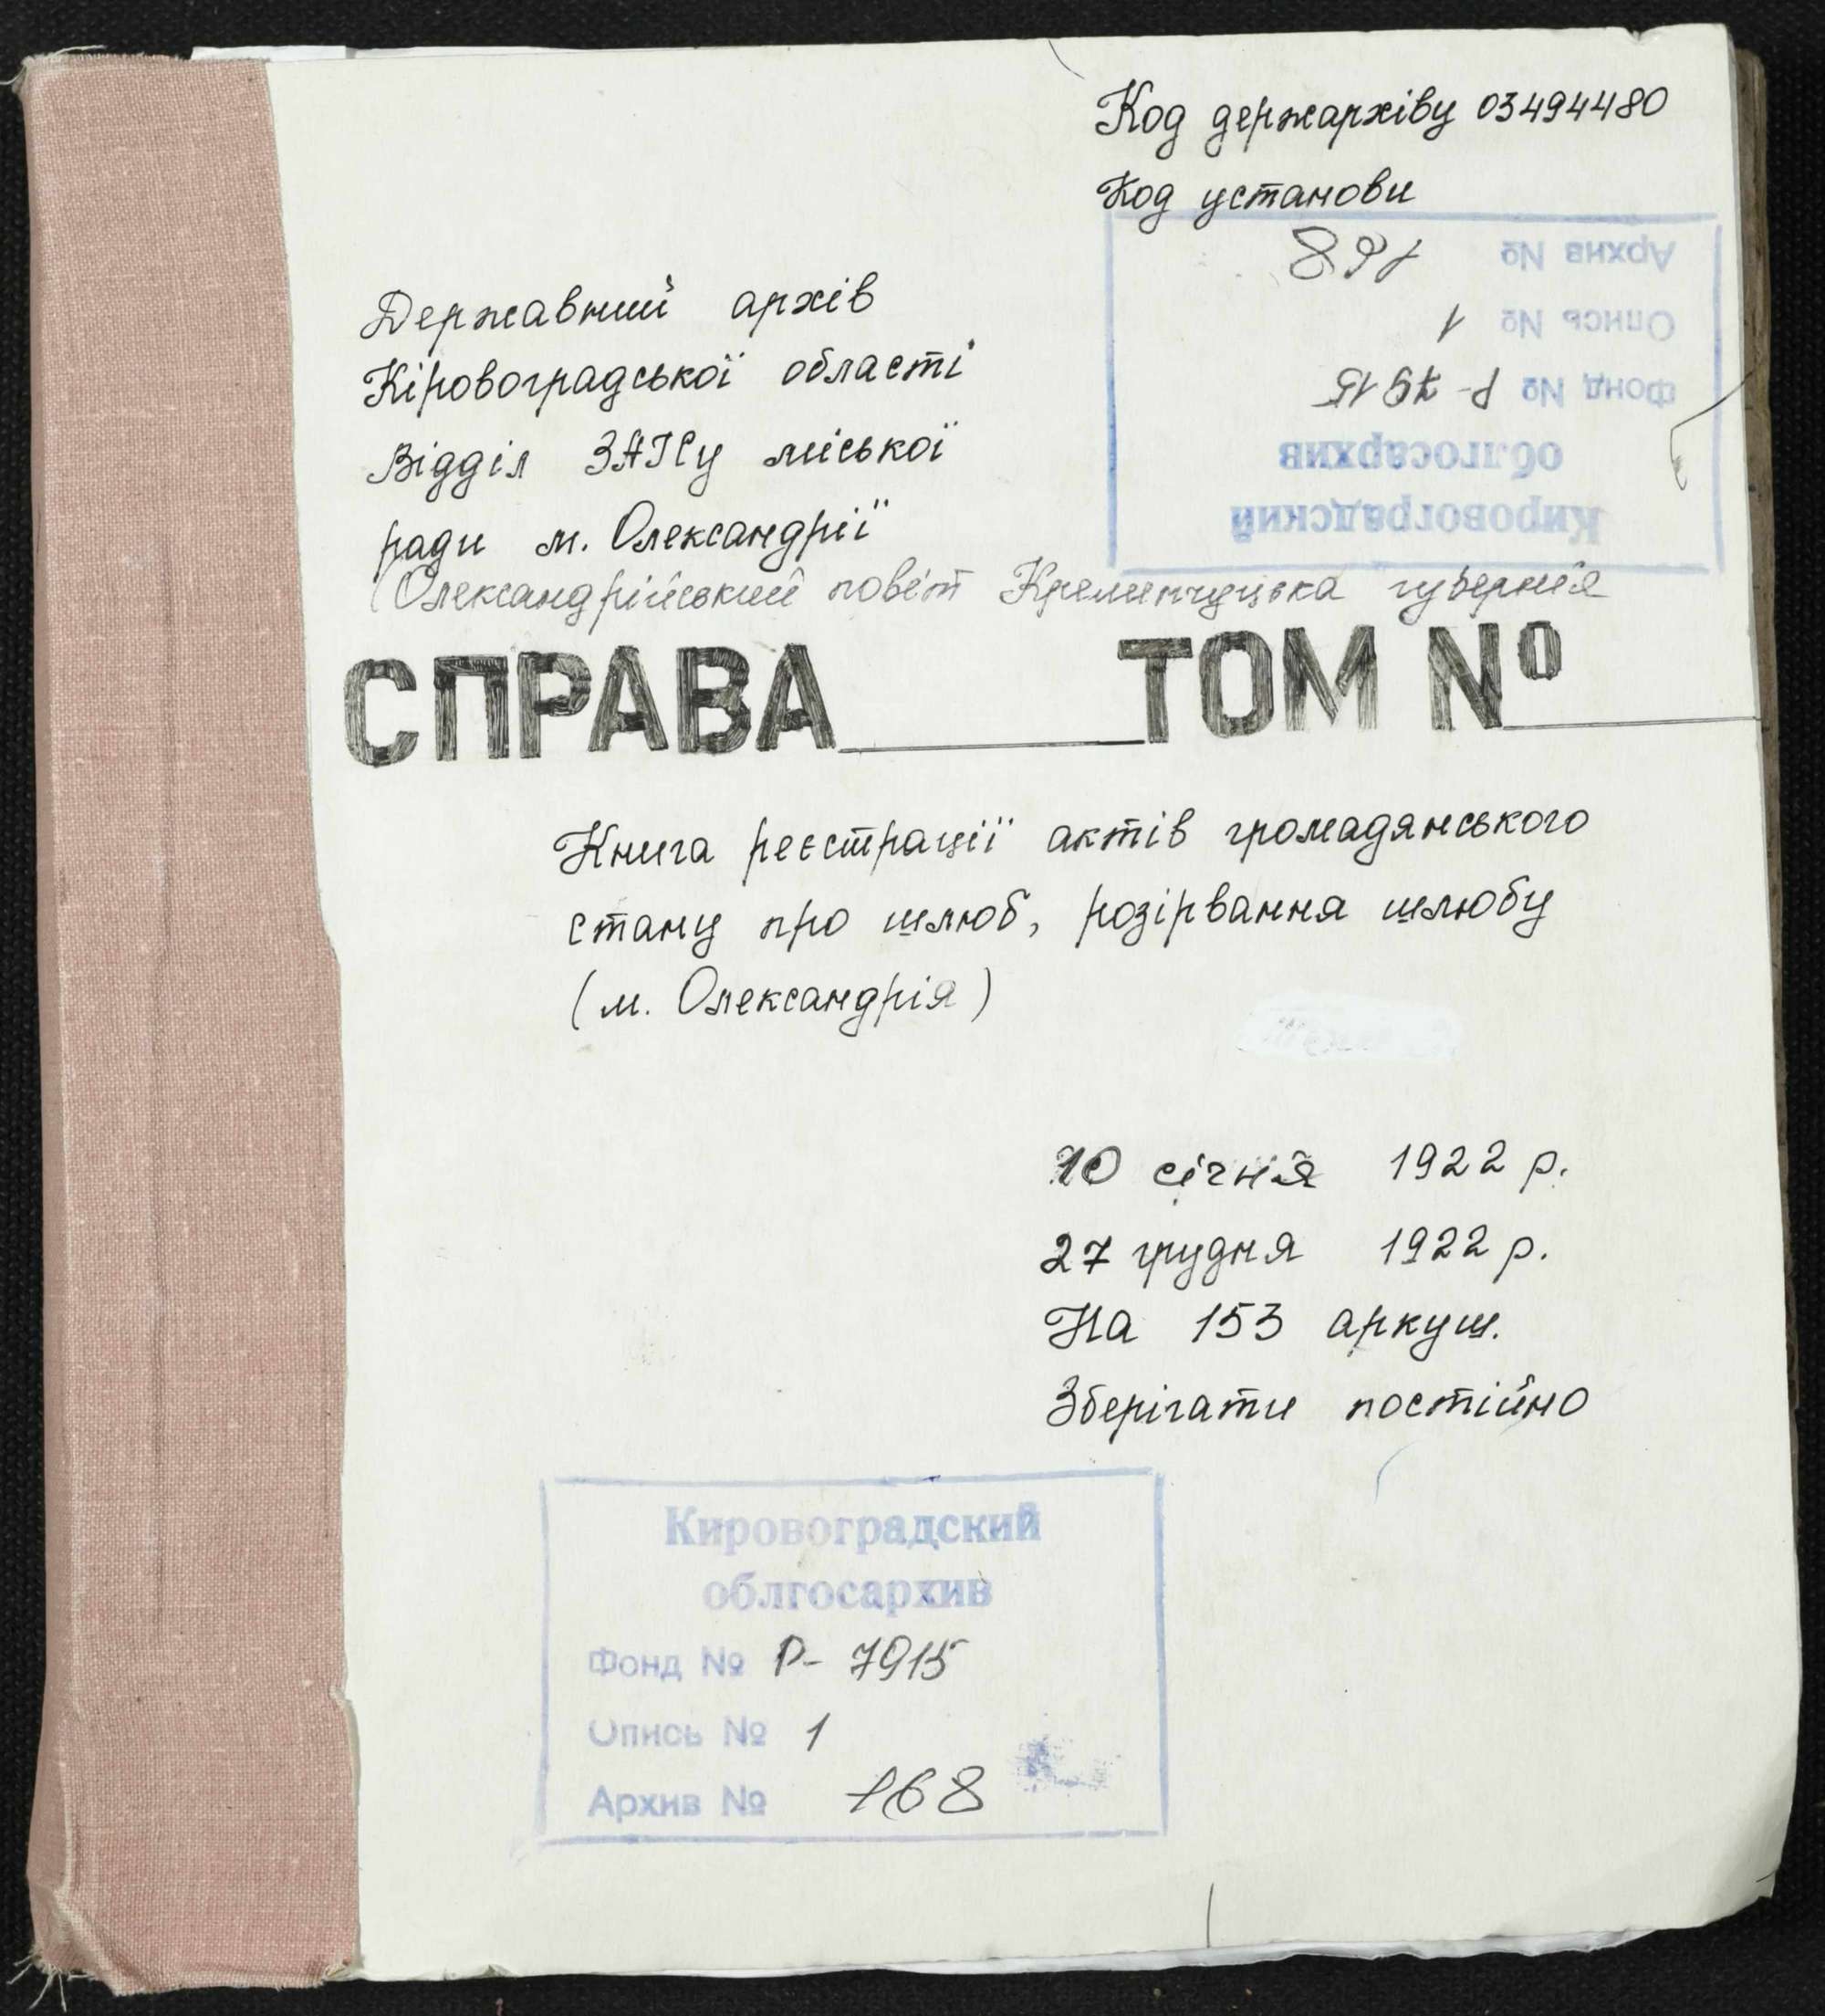 Код держархіву 03494480
Код установи
Кировоградский
облгосархив
Фонд № Р-7915
Опись № 1
Архив № 168
Державний архів
Кіровоградської області
Відділ ЗАГСу міської
ради м. Олександрії
(Олександрійський повіт Кременчуцька губернія
СПРАВА ТОМ №
Книга реєстрації актів громадянського
стану про шлюб, розірвання шлюбу
(м. Олександрія)
10 січня 1922 р.
27 грудня 1922 р.
На 153 аркуш.
Зберігати постійно
Кировоградский
облгосархив
Фонд № Р-7915
Опись № 1
Архив № 168